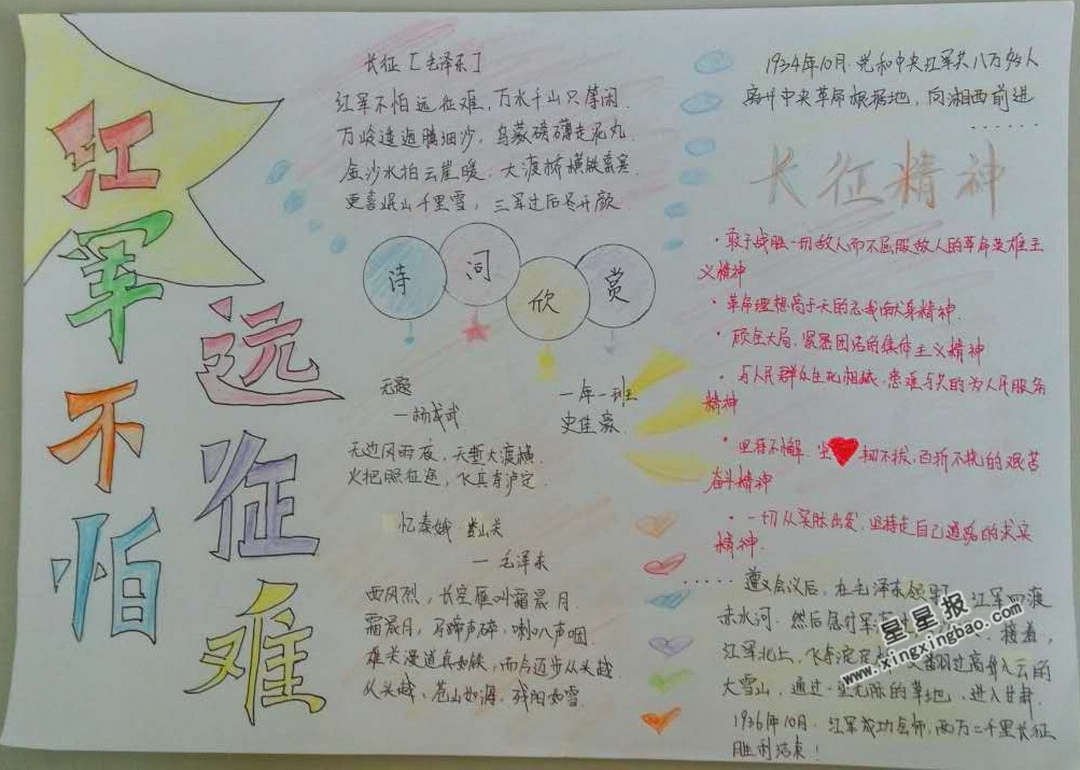 红军不怕
远征难
长征[毛泽东]
红军不怕远征难，万水千山只等闲.
万岭逶迤腾细沙，乌蒙磅礴走泥丸
金沙水拍云崖暖，大渡桥横铁索寒
更喜岷山千里雪，三军过后尽开颜
诗词欣赏
无题
—杨成武
无边风雨夜，天堑大渡横.
火把照征途，飞兵夺泸定.
一年一班
史佳豪
忆秦娥 娄山关
—毛泽东
西风烈，长空雁叫霜晨月.
霜晨月，马蹄声碎，喇叭声咽.
雄关漫道真如铁，而今迈步从头越
从头越、苍山如海，残阳如雪
1934年10月.党和中央红军共八万多人
离开中央革命根据地，向湘西前进
......
长征精神
·敢于战胜一切敌人而不屈服敌人的革命英雄主
义精神
·革命理想高于天的忘我献身精神.
·顾全大局，紧密团结的集体主义精神
·与人民群众生死相依，患难与共的为人民服务
精神
·坚 韧不拔，百折不挠的艰苦
奋斗精神
·一切从实际出发，坚持走自己道路的求实
精神.
......遵义会议后，在毛泽东领导 红军四渡
赤水河.然后急行军 接着，
红军北上，飞夺泸定 又翻过高耸入云的
大雪山，通过 无际的草地，进入甘肃.
1936年10月.红军成功会师，两万二千里长征
胜利结束！
星星报
www.xingxingbao.com